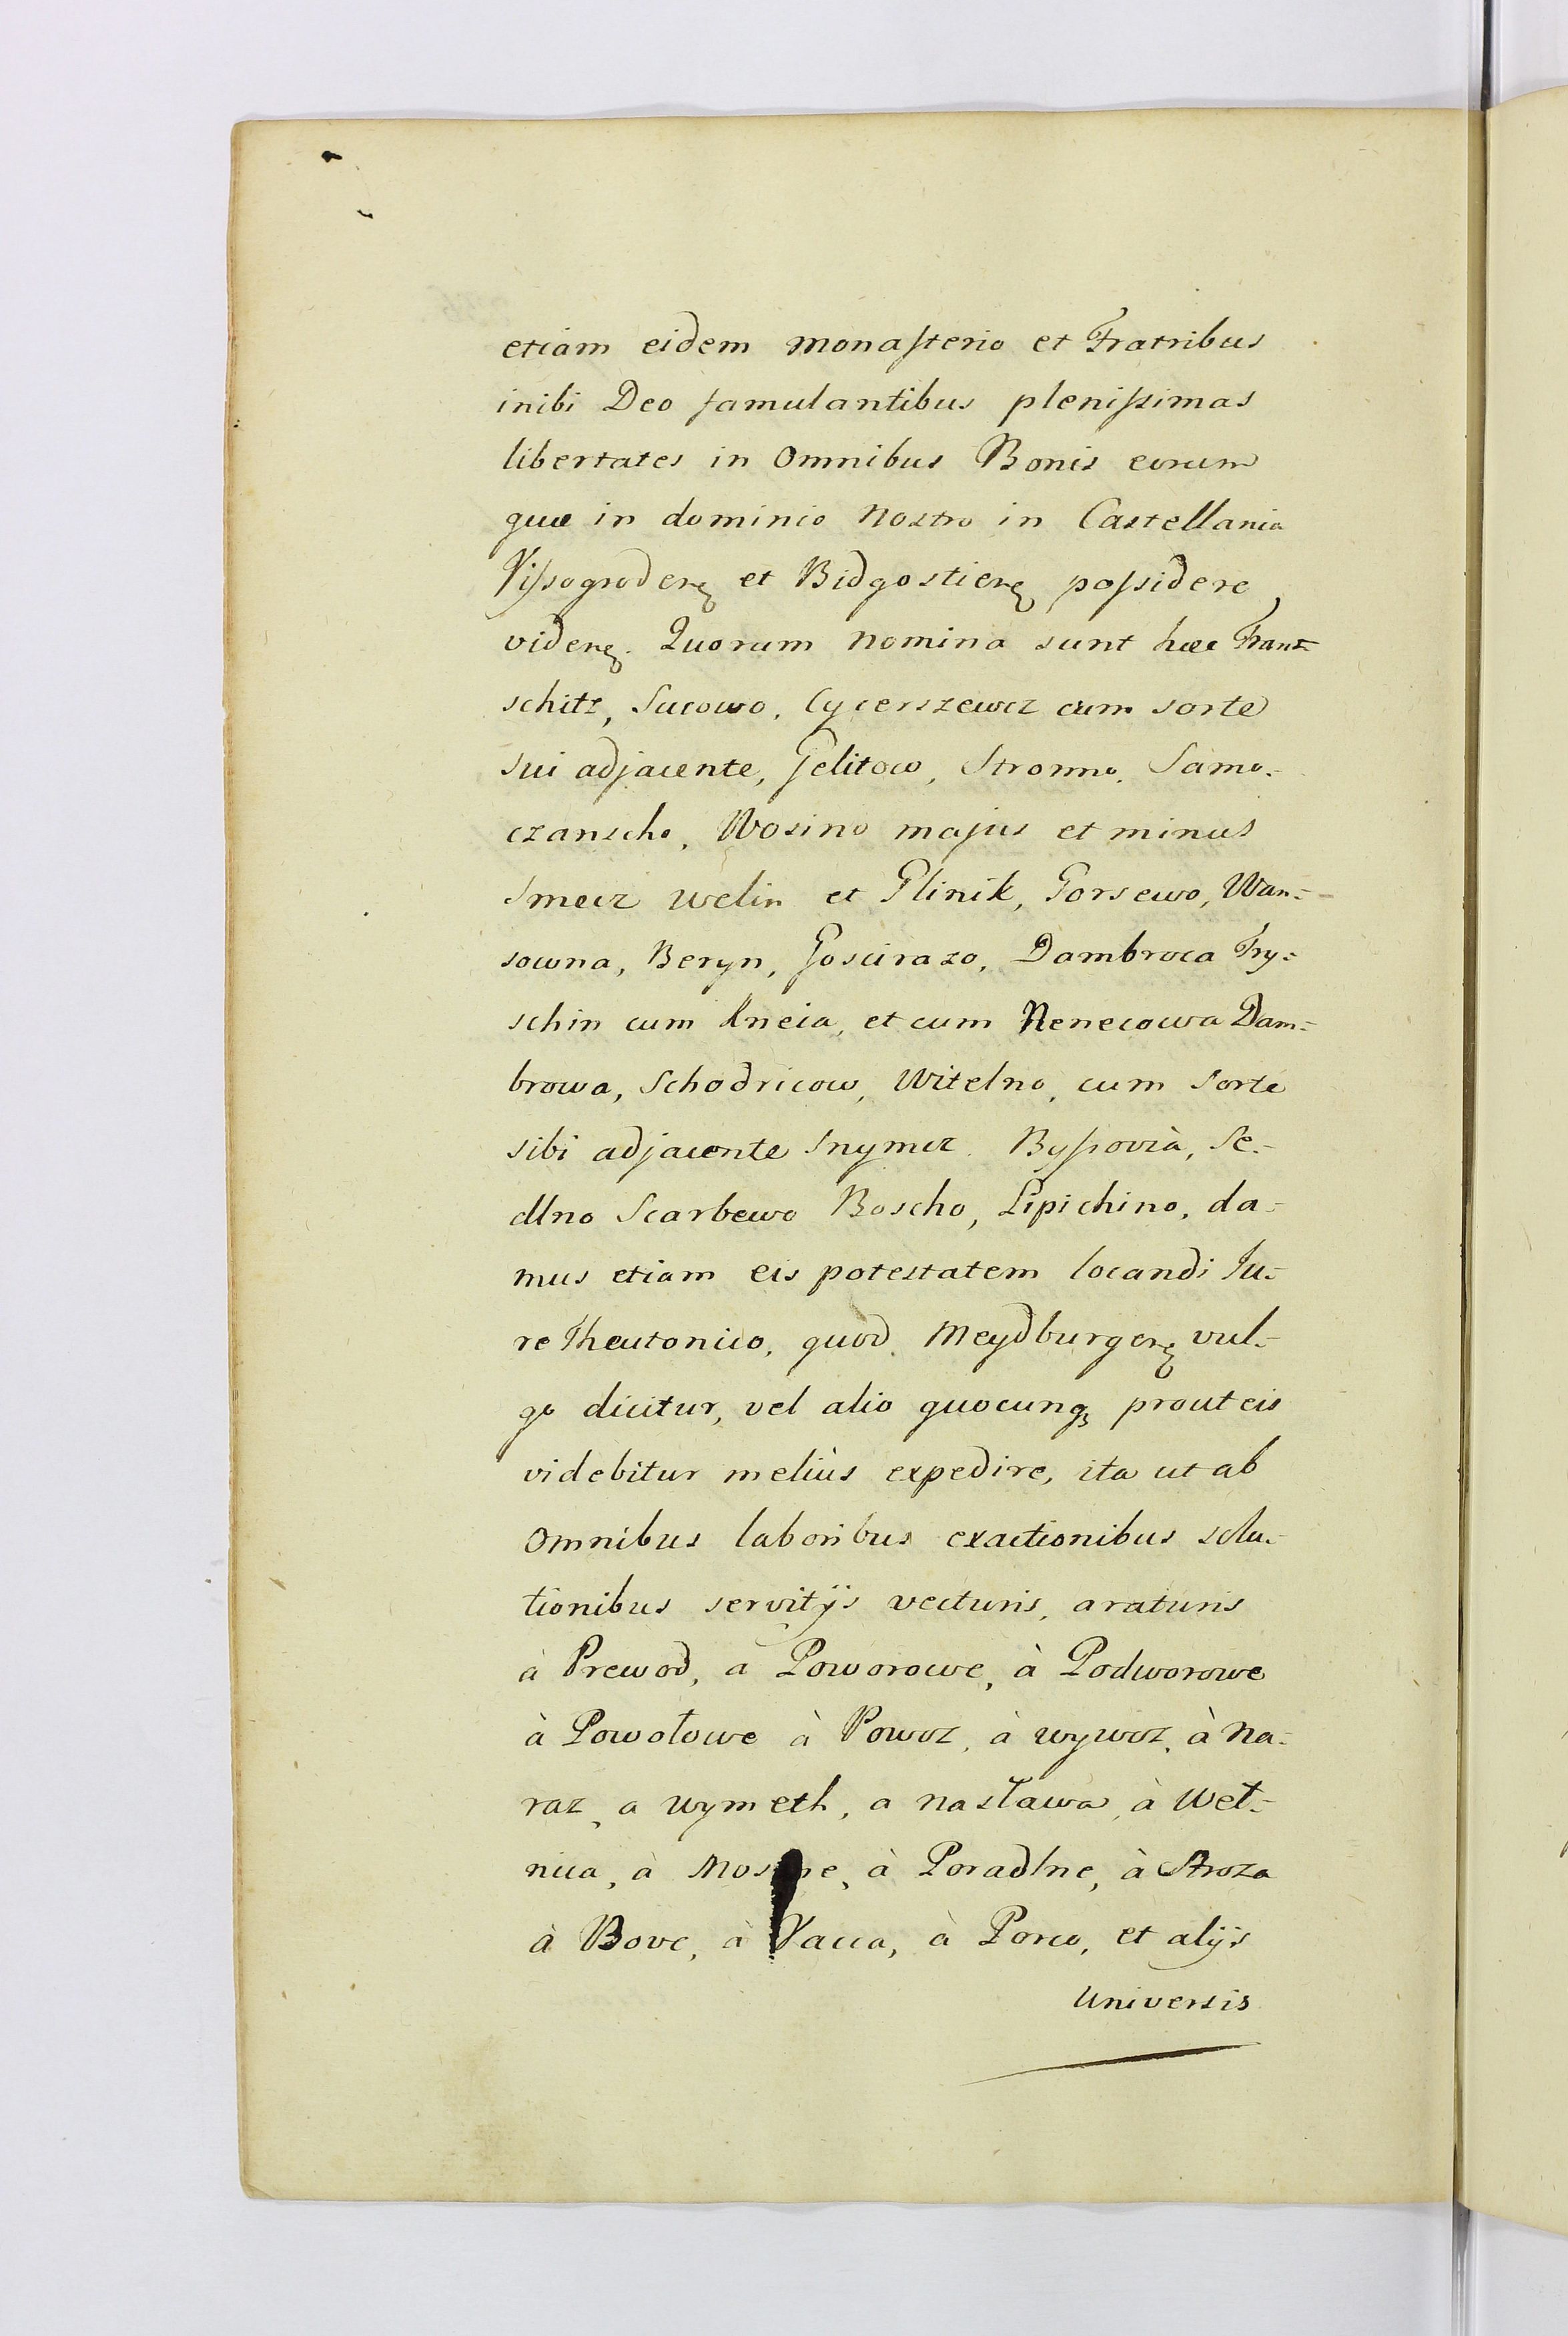 etiam eidem monasterio et Fratribus
inibi Deo famulantibus plenissimas
libertates in omnibus Bonis eorum
quæ in dominio nostro in Castellania
Vissogroden̄ et Bidgostien̄ possidere
viden̄. Quorum nomina sunt hæc Trant-
schitz, Sucowo, Cycerszewcz cum sorte
sui adjacente, Gelitow, Stronno, Samo-
czanscho, Wosino majus et minus
Smecz Welin et Glinik, Gorsewo, Wan-
sowna, Beryn, Goscirazo, Dambroca Try-
schin cum Kneia, et cum Nenecowa Dam-
browa, Schodricow, Witelno, cum sorte
sibi adjacente Snymcz. Byssovià, Se-
dlno Scarbewo Boscho, Lipichino, da-
mus etiam eis potestatem locandi Ju-
re Theutonico, quod Meydburgen̄ vul-
go dicitur, vel alio quocunq; prout eis
videbitur meliùs expedire, ita ut ab
omnibus laboribus exactionibus solu-
tionibus servitijs vecturis, araturis
à Prewod, a Poworowe, à Podworowe
à Powołowe à Powoz, à wywoz, à Na-
raz, a wymeth, a nasława, à Wet-
nica, à , à Poradlne, à Stroza
à Bove, à Vacca, à Porco, et alijs
Universis